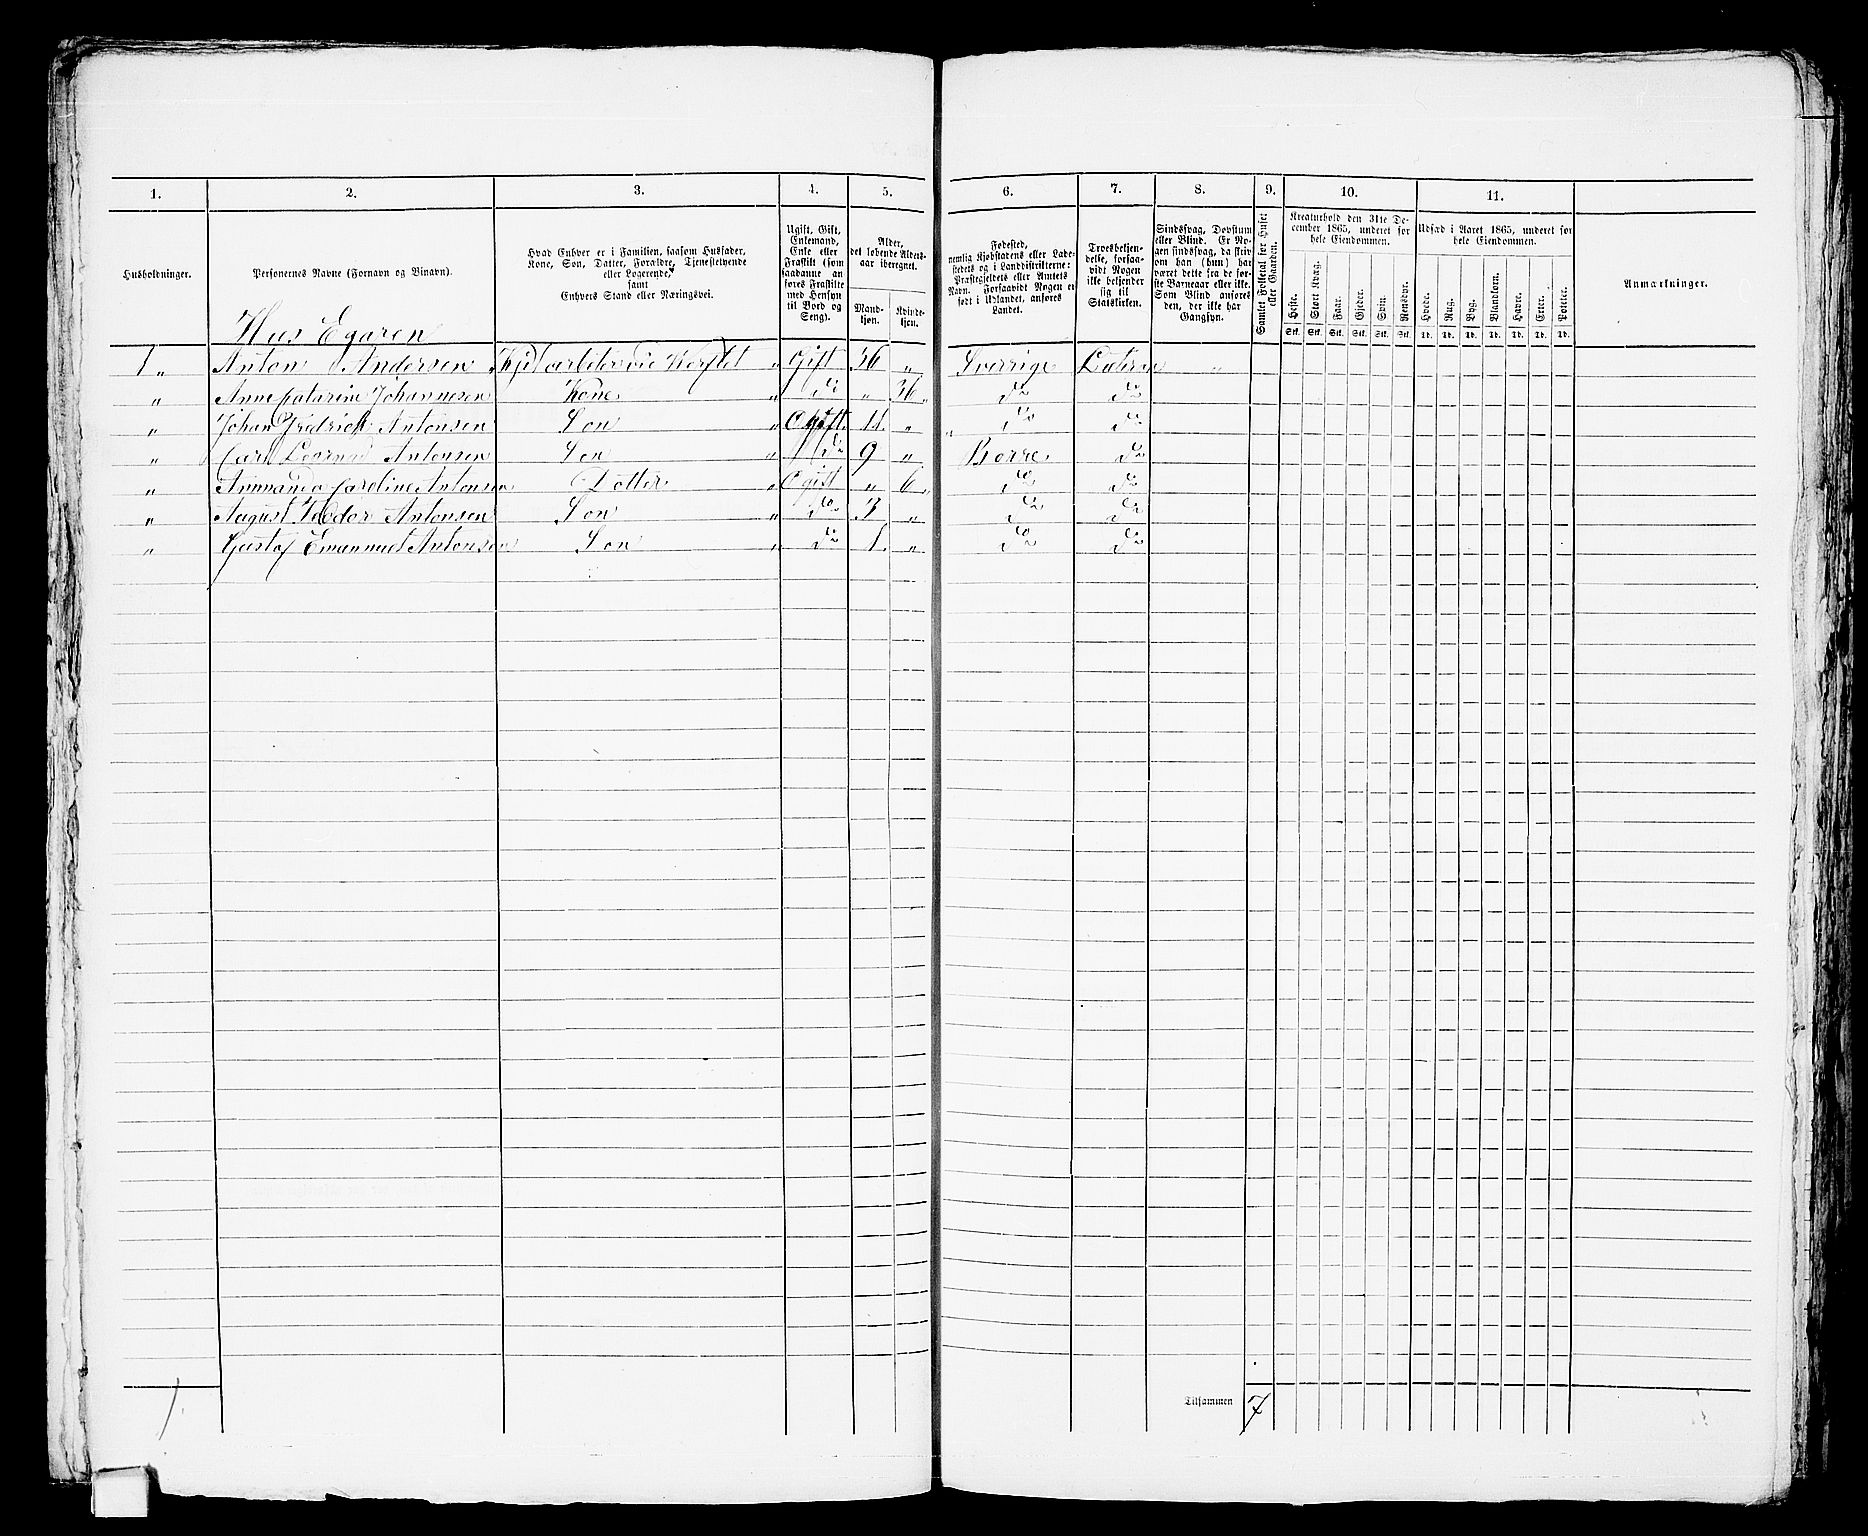 1. 2. 3. 4. 5. 6. 7. 8. 9. 10. 11.
Husholdninger.
Personernes Navne (Fornavn og Binavn).
Hvad Enhver er i Familien, saasom Husfader,
Kone, Søn, Datter, Forældre, Tjenestetyende
eller Logerende,
samt
Enhvers Stand eller Næringsvei.
Ugift, Gift,
Enkemand,
Enke eller
Fraskilt (som
saadanne an-
føres Fraskilte
med Hensyn
til Bord og
Seng).
Alder,
det løbende Alders-
aar iberegnet.
Mand-
kjøn.
Kvinde-
kjøn.
Fødested,
nemlig Kjøbstadens eller Lade-
stedets og i Landdistrikterne:
Præstegjeldets eller Amtets
Navn. Forsaavidt Nogen er
født i Udlandet, anføres
Landet.
Troesbekjen-
delse, forsaa-
vidt Nogen
ikke bekjender
sig til
Statskirken.
Sindssvag, Døvstum
eller Blind. Er No-
gen sindssvag, da skriv
om han (hun) har
været dette fra de før-
ste Barneaar eller ikke.
Som Blind ansøres
den, der ikke har
Gangsyn.
Samlet Folketal for Huset
eller Gaarden.
Kreaturhold den 31te De-
cember 1865, underet for
hele Eiendommen.
Heste. Stort Kvæg. Faar. Gjeder. Sviin. Rensdyr.
Stk. Stk. Stk. Stk. Stk. Stk.
Udsæd i Aaret 1865, underet for
hele Eiendommen.
Hvede. Rug. Byg. Blandkorn. Havre. Erter. Poteter.
Td. Td. Td. Td. Td. Td. Td.
Anmærkninger.
Hus Egaren
1 " Anton Andersen arbeider vid Verftet " Gift 36 " Sverrige "
" Anne Catarine Johannesen Kone " do " 36 " do do
" Johan Fredrick Antonsen Son " Ogift 11 " do do
" Carl Antonsen Son " do 9 " Borre do
" Ammanda Caroline Antonsen Dotter " Ogift " 6 " do do
" August Teodor Antonsen Son " do 3 " do do
" Gustaf Emanuel Antonsen Son " do 1 " do do
Tilsammen 7
1.